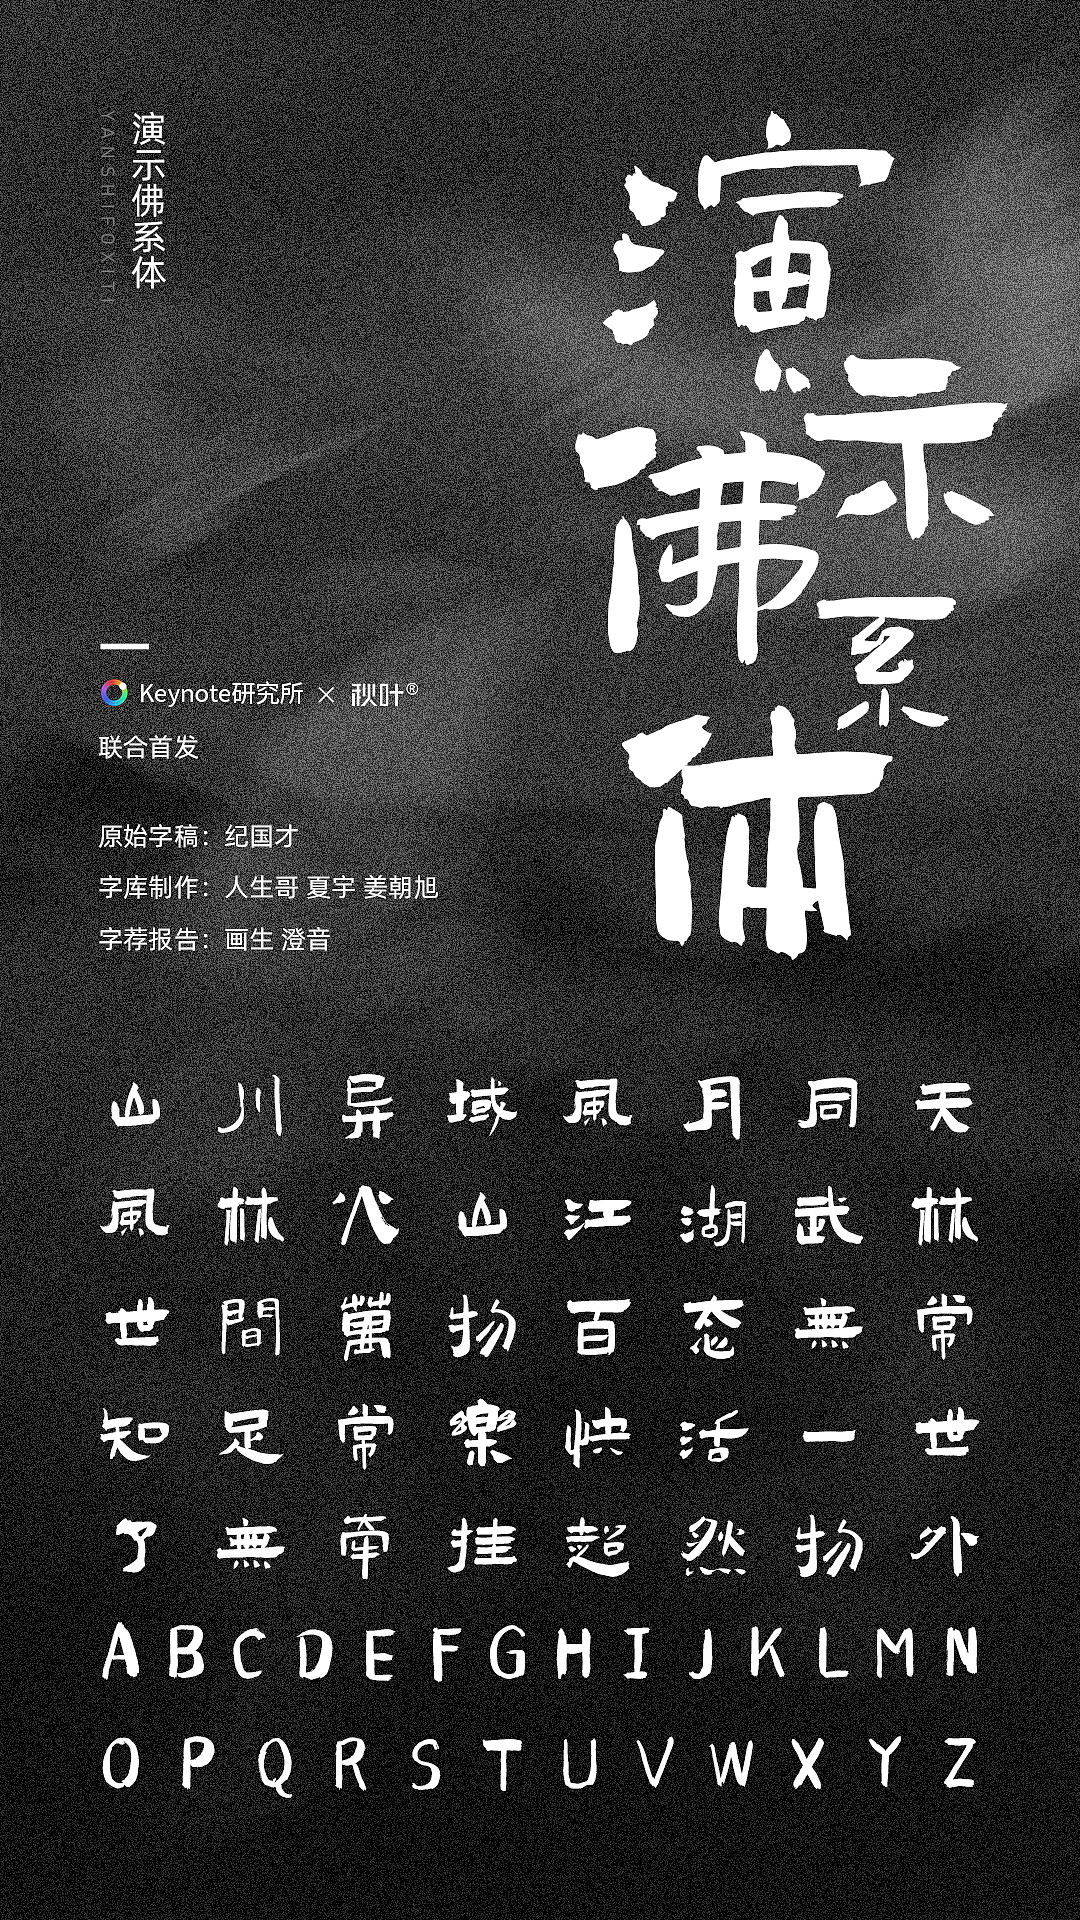 演示佛系体
YANSHIFOXITI
演示佛系体
Keynote研究所 × 秋叶®
联合首发
原始字稿：纪国才
字库制作：人生哥 夏宇 姜朝旭
字荐报告：画生 澄音
山川异域風月同天
風林火山江湖武林
世間萬物百态無常
知足常樂快活一世
了無牽挂超然物外
ABCDEFGHIJKLMN
OPQRSTUVWXYZ